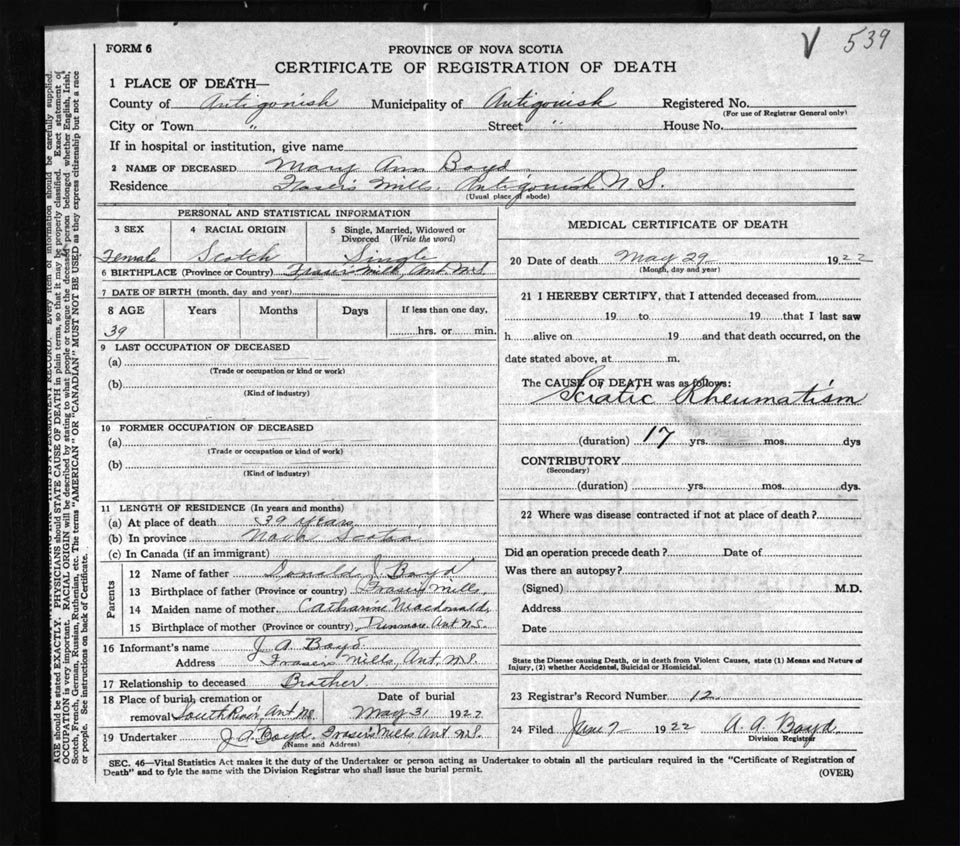 V 539
FORM 6
PROVINCE OF NOVA SCOTIA
CERTIFICATE OF REGISTRATION OF DEATH
1 PLACE OF DEATH—
County of Antigonish Municipality of Antigonish Registered No.
(For use of Registrar General only)
City or Town " Street " House No.
If in hospital or institution, give name
2 NAME OF DECEASED Mary Ann Boyd
Residence Fraser's Mills, Antigonish N.S.
(Usual place of abode)
PERSONAL AND STATISTICAL INFORMATION
3 SEX 4 RACIAL ORIGIN 5 Single, Married, Widowed or
Divorced (Write the word)
Female Scotch Single
6 BIRTHPLACE (Province or Country) Fraser's Mills, Ant. N.S.
7 DATE OF BIRTH (month, day and year)
8 AGE Years Months Days If less than one day,
39 hrs. or min.
9 LAST OCCUPATION OF DECEASED
(a)
(Trade or occupation or kind or work)
(b)
(Kind of industry)
10 FORMER OCCUPATION OF DECEASED
(a)
(Trade or occupation or kind of work)
(b)
(Kind of industry)
11 LENGTH OF RESIDENCE (In years and months)
(a) At place of death 39 years
(b) In province Nova Scotia
(c) In Canada (if an immigrant)
Parents
12 Name of father Donald J. Boyd
13 Birthplace of father (Province or country) Frasers Mills,
14 Maiden name of mother Catharine Macdonald
15 Birthplace of mother (Province or country) Dunmore Ant N.S.
16 Informant's name J. A. Boyd
Address Frasers Mills, Ant, N.S.
17 Relationship to deceased Brother
18 Place of burial, cremation or Date of burial
removal South River, Ant N.S. May 31 1922
19 Undertaker J. A. Boyd, Frasers Mills Ant N.S.
(Name and Address)
MEDICAL CERTIFICATE OF DEATH
20 Date of death May 29 1922
(Month, day and year)
21 I HEREBY CERTIFY, that I attended deceased from
19 to 19 that I last saw
h alive on 19 and that death occurred, on the
date stated above, at m.
The CAUSE OF DEATH was as follows:
Sciatic Rheumatism
(duration) 17 yrs. mos. dys
CONTRIBUTORY
(Secondary)
(duration) yrs. mos. dys.
22 Where was disease contracted if not at place of death?
Did an operation precede death? Date of
Was there an autopsy?
(Signed) M.D.
Address
Date
State the Disease causing Death, or in death from Violent Causes, state (1) Means and Nature of
Injury, (2) whether Accidental, Suicidal or Homicidal.
23 Registrar's Record Number 12
24 Filed June 7 1922 A. A. Boyd
Division Registrar
SEC. 46—Vital Statistics Act makes it the duty of the Undertaker or person acting as Undertaker to obtain all the particulars required in the "Certificate of Registration of
Death" and to fyle the same with the Division Registrar who shall issue the burial permit.
(OVER)
Every item of information should be carefully supplied.
AGE should be stated EXACTLY. PHYSICIANS should STATE CAUSE OF DEATH in plain terms, so that it may be properly classified. Exact statement of
OCCUPATION is very important. RACIAL ORIGIN will be described by stating to what people or tongue the deceased person belonged whether English, Irish,
Scotch, French, German, Russian, Ruthenian, etc. The terms "AMERICAN" OR "CANADIAN" MUST NOT BE USED as they express citizenship but not a race
or people. See instructions on back of Certificate.